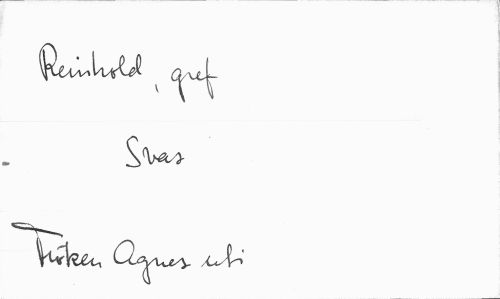 Reinhold, gref
Svar
Fröken Agnes